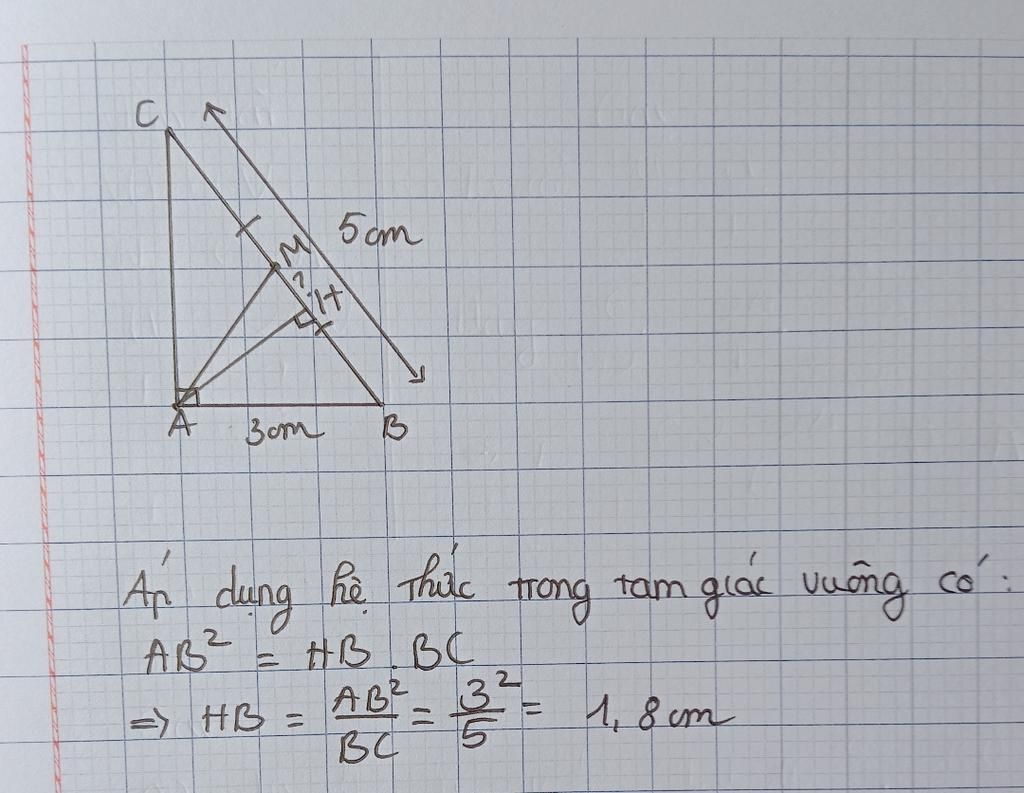 C
5cm
M
?
H
A
3cm
B
Áp dụng hệ thức trong tam giác vuông có :
AB² = HB . BC
=> HB = AB²/BC = 3²/5 = 1,8cm